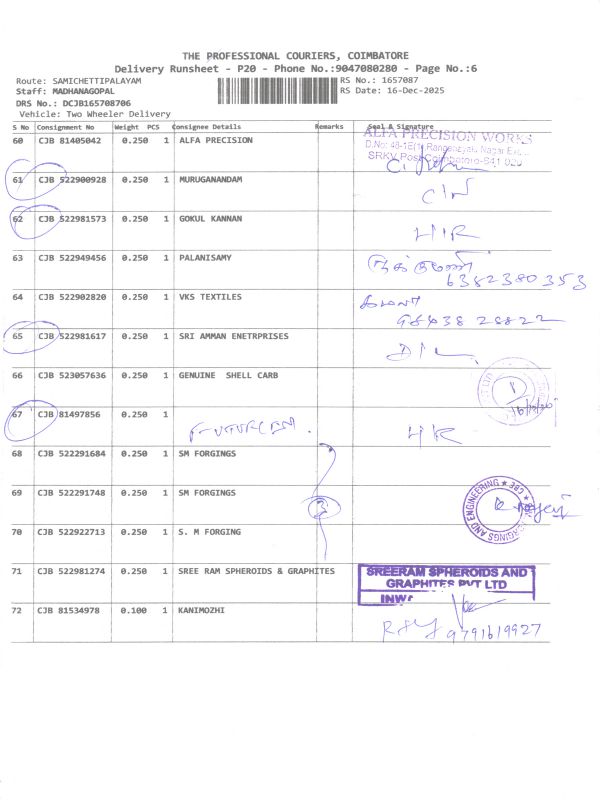 THE PROFESSIONAL COURIERS, COIMBATORE
Delivery Runsheet - P20 - Phone No.:9047080280 - Page No.:6
Route: SAMICHETTIPALAYAM RS No.: 1657087
Staff: MADHANAGOPAL RS Date: 16-Dec-2025
DRS No.: DCJB165708706
Vehicle: Two Wheeler Delivery
S No Consignment No Weight PCS Consignee Details Remarks Seal & Signature
60 CJB 81405042 0.250 1 ALFA PRECISION ALFA PRECISION WORKS
61 CJB 522900928 0.250 1 MURUGANANDAM
62 CJB 522981573 0.250 1 GOKUL KANNAN
63 CJB 522949456 0.250 1 PALANISAMY
6382380353
64 CJB 522902820 0.250 1 VKS TEXTILES
98438 28822
65 CJB 522981617 0.250 1 SRI AMMAN ENETRPRISES
66 CJB 523057636 0.250 1 GENUINE SHELL CARB
67 CJB 81497856 0.250 1
68 CJB 522291684 0.250 1 SM FORGINGS
69 CJB 522291748 0.250 1 SM FORGINGS 3
70 CJB 522922713 0.250 1 S. M FORGING
71 CJB 522981274 0.250 1 SREE RAM SPHEROIDS & GRAPHITES SREERAM SPHEROIDS AND
GRAPHITES PVT LTD
72 CJB 81534978 0.100 1 KANIMOZHI
9791619927